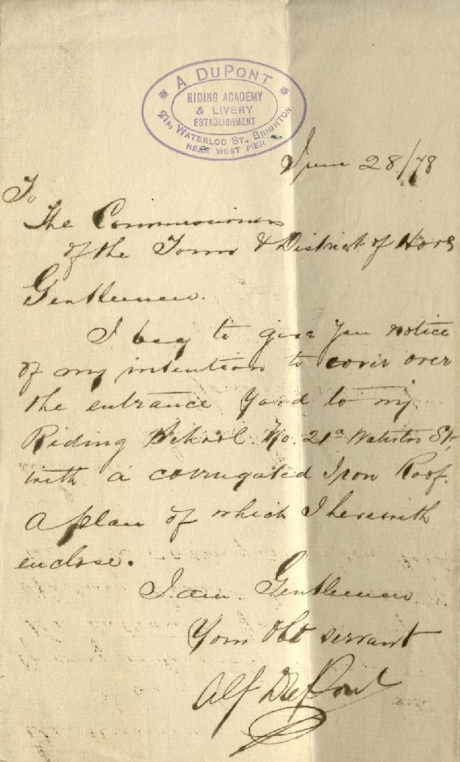 A DUPONT
RIDING ACADEMY
& LIVERY
ESTABLISHMENT
21A, WATERLOO ST., BRIGHTON
NEAR WEST PIER
June 28/78
To
The Commissioners
of the Town & District of Hove
Gentlemen.
I beg to give you notice
of my intention to cover over
the entrance Yard to my
Riding School No. 21a Waterloo St,
with a corrugated Iron Roof.
A plan of which I herewith
enclose.
I am Gentlemen
Your Obt servant
Alf DuPont